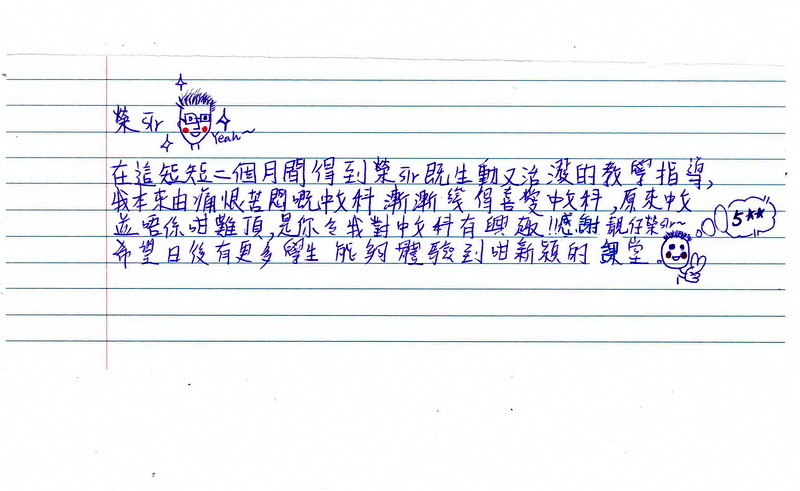 榮 Sir
Yeah~
在這短短二個月間得到榮Sir既生動又活潑的教學指導,
我本來由痛恨苦悶嘅中文科漸漸幾得喜愛中文科,原來中文
並唔係咁難頂,是你令我對中文科有興趣!!感謝靚仔榮Sir~
5**
希望日後有更多學生能夠體驗到咁新穎的課堂